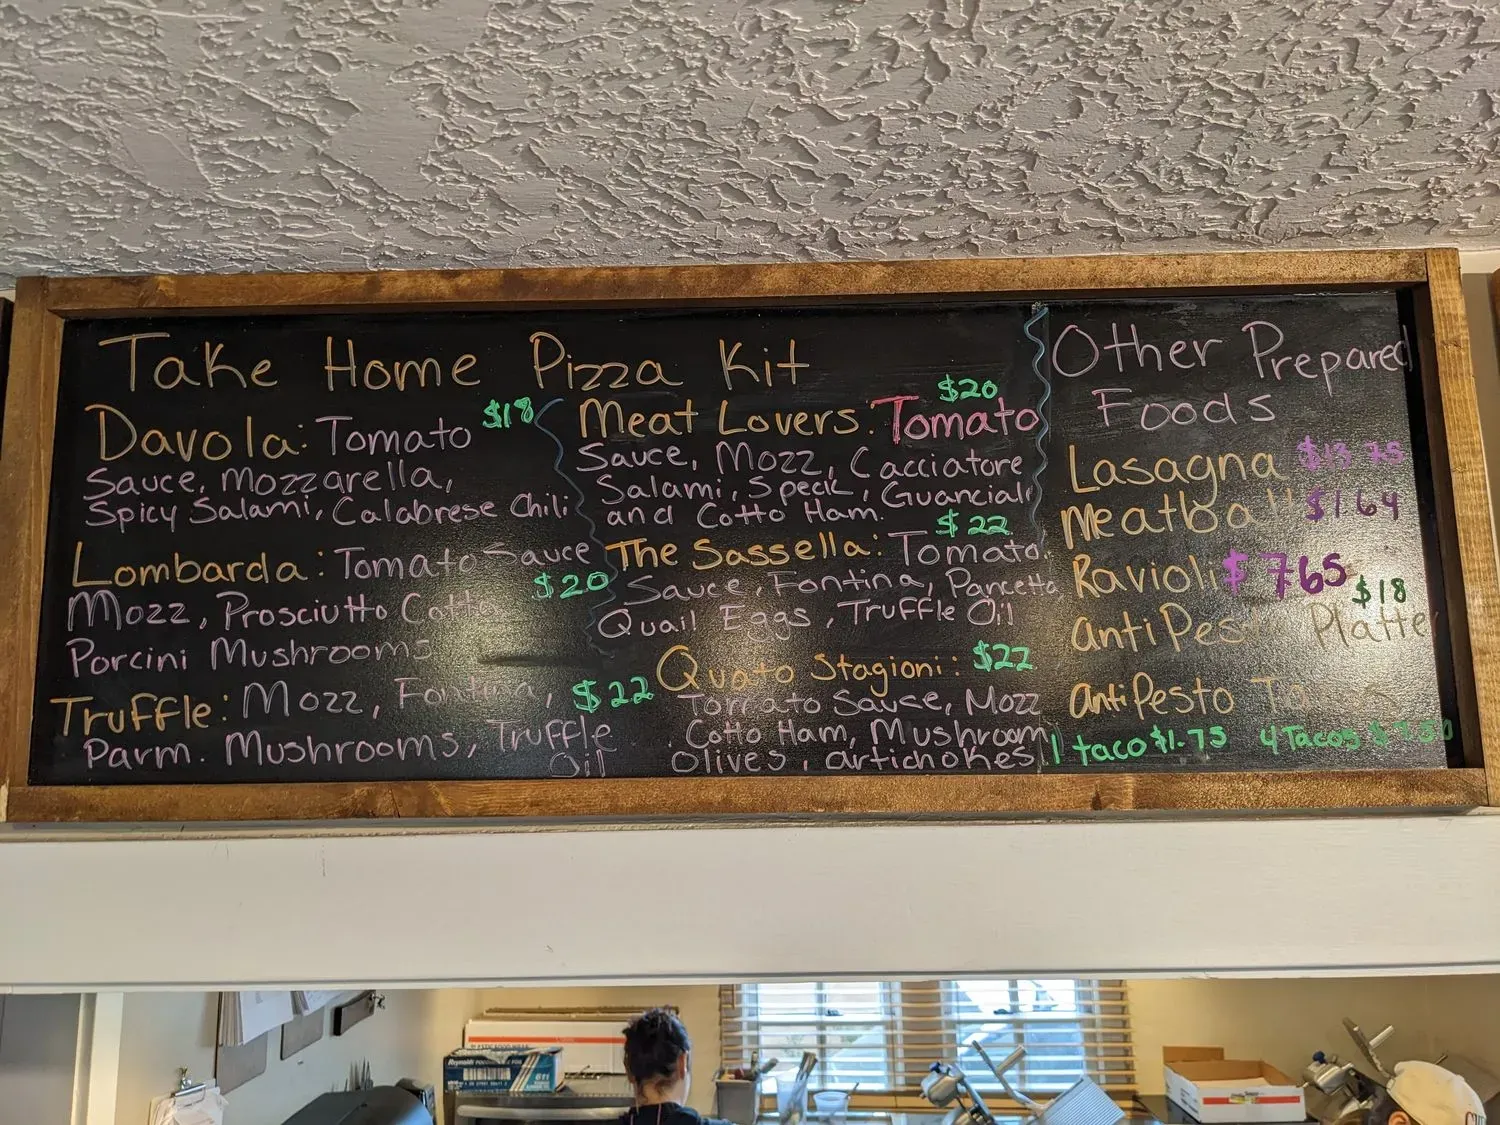 Take Home Pizza Kit
Davola: Tomato $18
Sauce, Mozzarella,
Spicy Salami, Calabrese Chili
Lombarda: Tomato Sauce
$20
Mozz, Prosciutto Cotto
Porcini Mushrooms
Truffle: Mozz, Fontina, $22
Parm. Mushrooms, Truffle
Oil
$20
Meat Lovers: Tomato
Sauce, Mozz, Cacciatore
Salami, Speck, Guanciale
and Cotto Ham.
$22
The Sassella: Tomato
Sauce, Fontina, Pancetta
Quail Eggs, Truffle Oil
Quato Stagioni: $22
Tomato Sauce, Mozz
Cotto Ham, Mushroom,
Olives, artichokes
Other Prepared
Foods
Lasagna $13.75
Meatball $1.64
Ravioli $7.65
$18
AntiPesto Platter
AntiPesto
1 taco $1.75 4 Tacos
Reynolds
611